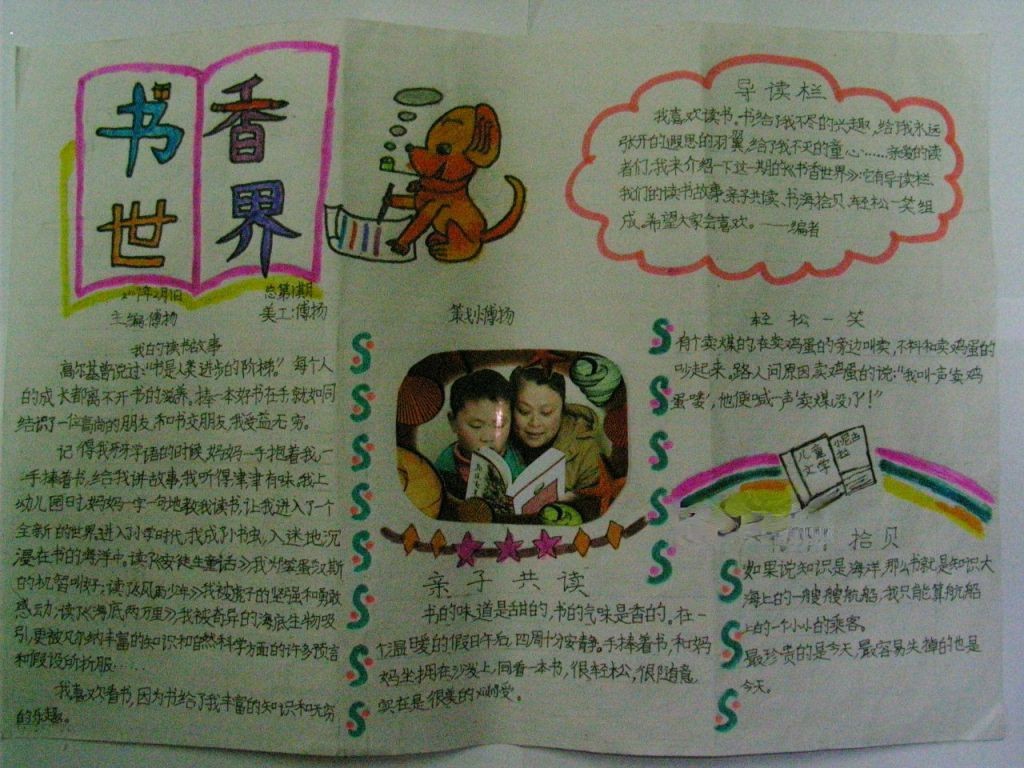 书香
世界
总第1期
主编:傅扬
美工:傅扬
策划:傅扬
导读栏
我喜欢读书。书给了我不尽的兴趣,给了我永远
张开的遐思的羽翼,给了我不灭的童心……亲爱的读
者们,我来介绍一下这一期的《书香世界》:它有导读栏、
我们的读书故事、亲子共读、书海拾贝、轻松一笑组
成。希望大家会喜欢。——编者
我的读书故事
高尔基曾说过:“书是人类进步的阶梯。”每个人
的成长都离不开书的滋养。捧一本好书在手就如同
结识了一位高尚的朋友,和书交朋友,我受益无穷。
记得我牙牙学语的时候,妈妈一手抱着我,一
手捧着书,给我讲故事,我听得津津有味。我上
幼儿园时,妈妈一字一句地教我读书,让我进入了一个
全新的世界。进入小学时代,我成了小书虫,入迷地沉
浸在书的海洋中。读《安徒生童话》,我为笨蛋汉斯
的机智叫好;读《风雨少年》,我被鹰子的坚强和勇敢
感动;读《海底两万里》,我被奇异的海底生物吸
引,更被凡尔纳丰富的知识和自然科学方面的许多预言
和假设所折服……
我喜欢看书,因为书给了我丰富的知识和无穷
的乐趣。
亲子共读
书的味道是甜的,书的气味是香的。在一
个温暖的假日午后,四周十分安静。手捧着书,和妈
妈坐拥在沙发上,同看一本书,很轻松,很随意,
实在是很美的享受。
轻松一笑
有个卖煤的,在卖鸡蛋的旁边叫卖,不料和卖鸡蛋的
吵起来。路人问原因,卖鸡蛋的说:“我叫一声卖鸡
蛋喽,他便喊一声卖煤没了!”
儿童
文学
拾贝
如果说知识是海洋,那么书就是知识大
海上的一艘艘航船,我只能算航船
上的一个小小的乘客。
最珍贵的是今天,最容易失掉的也是
今天。